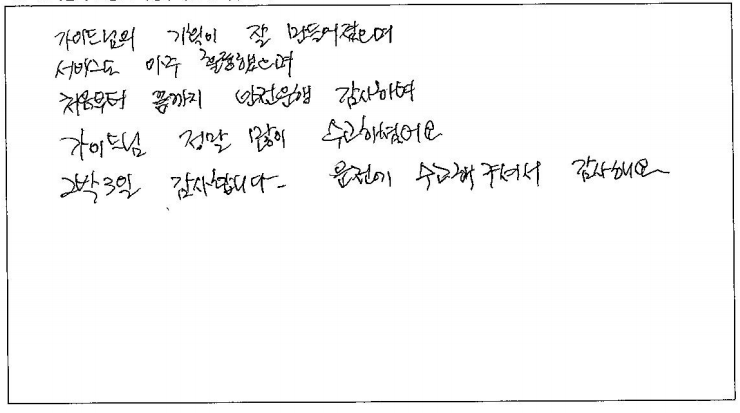 가이드님의 기획이 잘 만들어졌으며
서비스도 아주 훌륭했으며
처음부터 끝까지 안전운행 감사하며
가이드님 정말 많이 수고하셨어요
2박3일 감사합니다- 운전에 수고해 주셔서 감사해요~